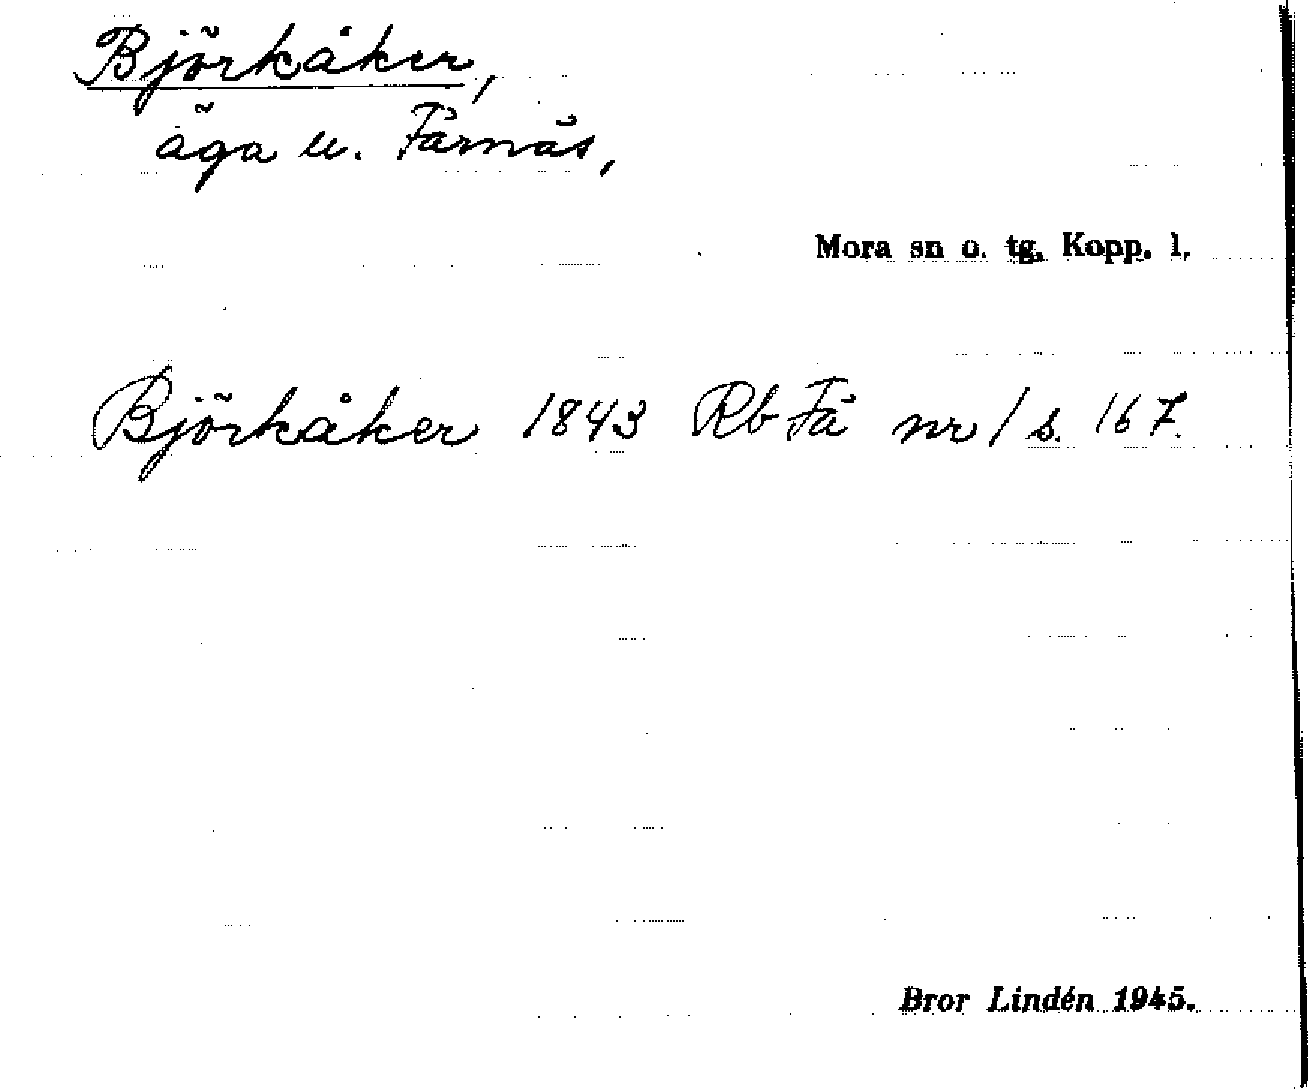 Björkåker,
äga u. Färnäs,
Mora sn o. tg. Kopp. l.
Björkåker 1843 Rb Fä nr 1 s. 167.
Bror Lindén 1945.